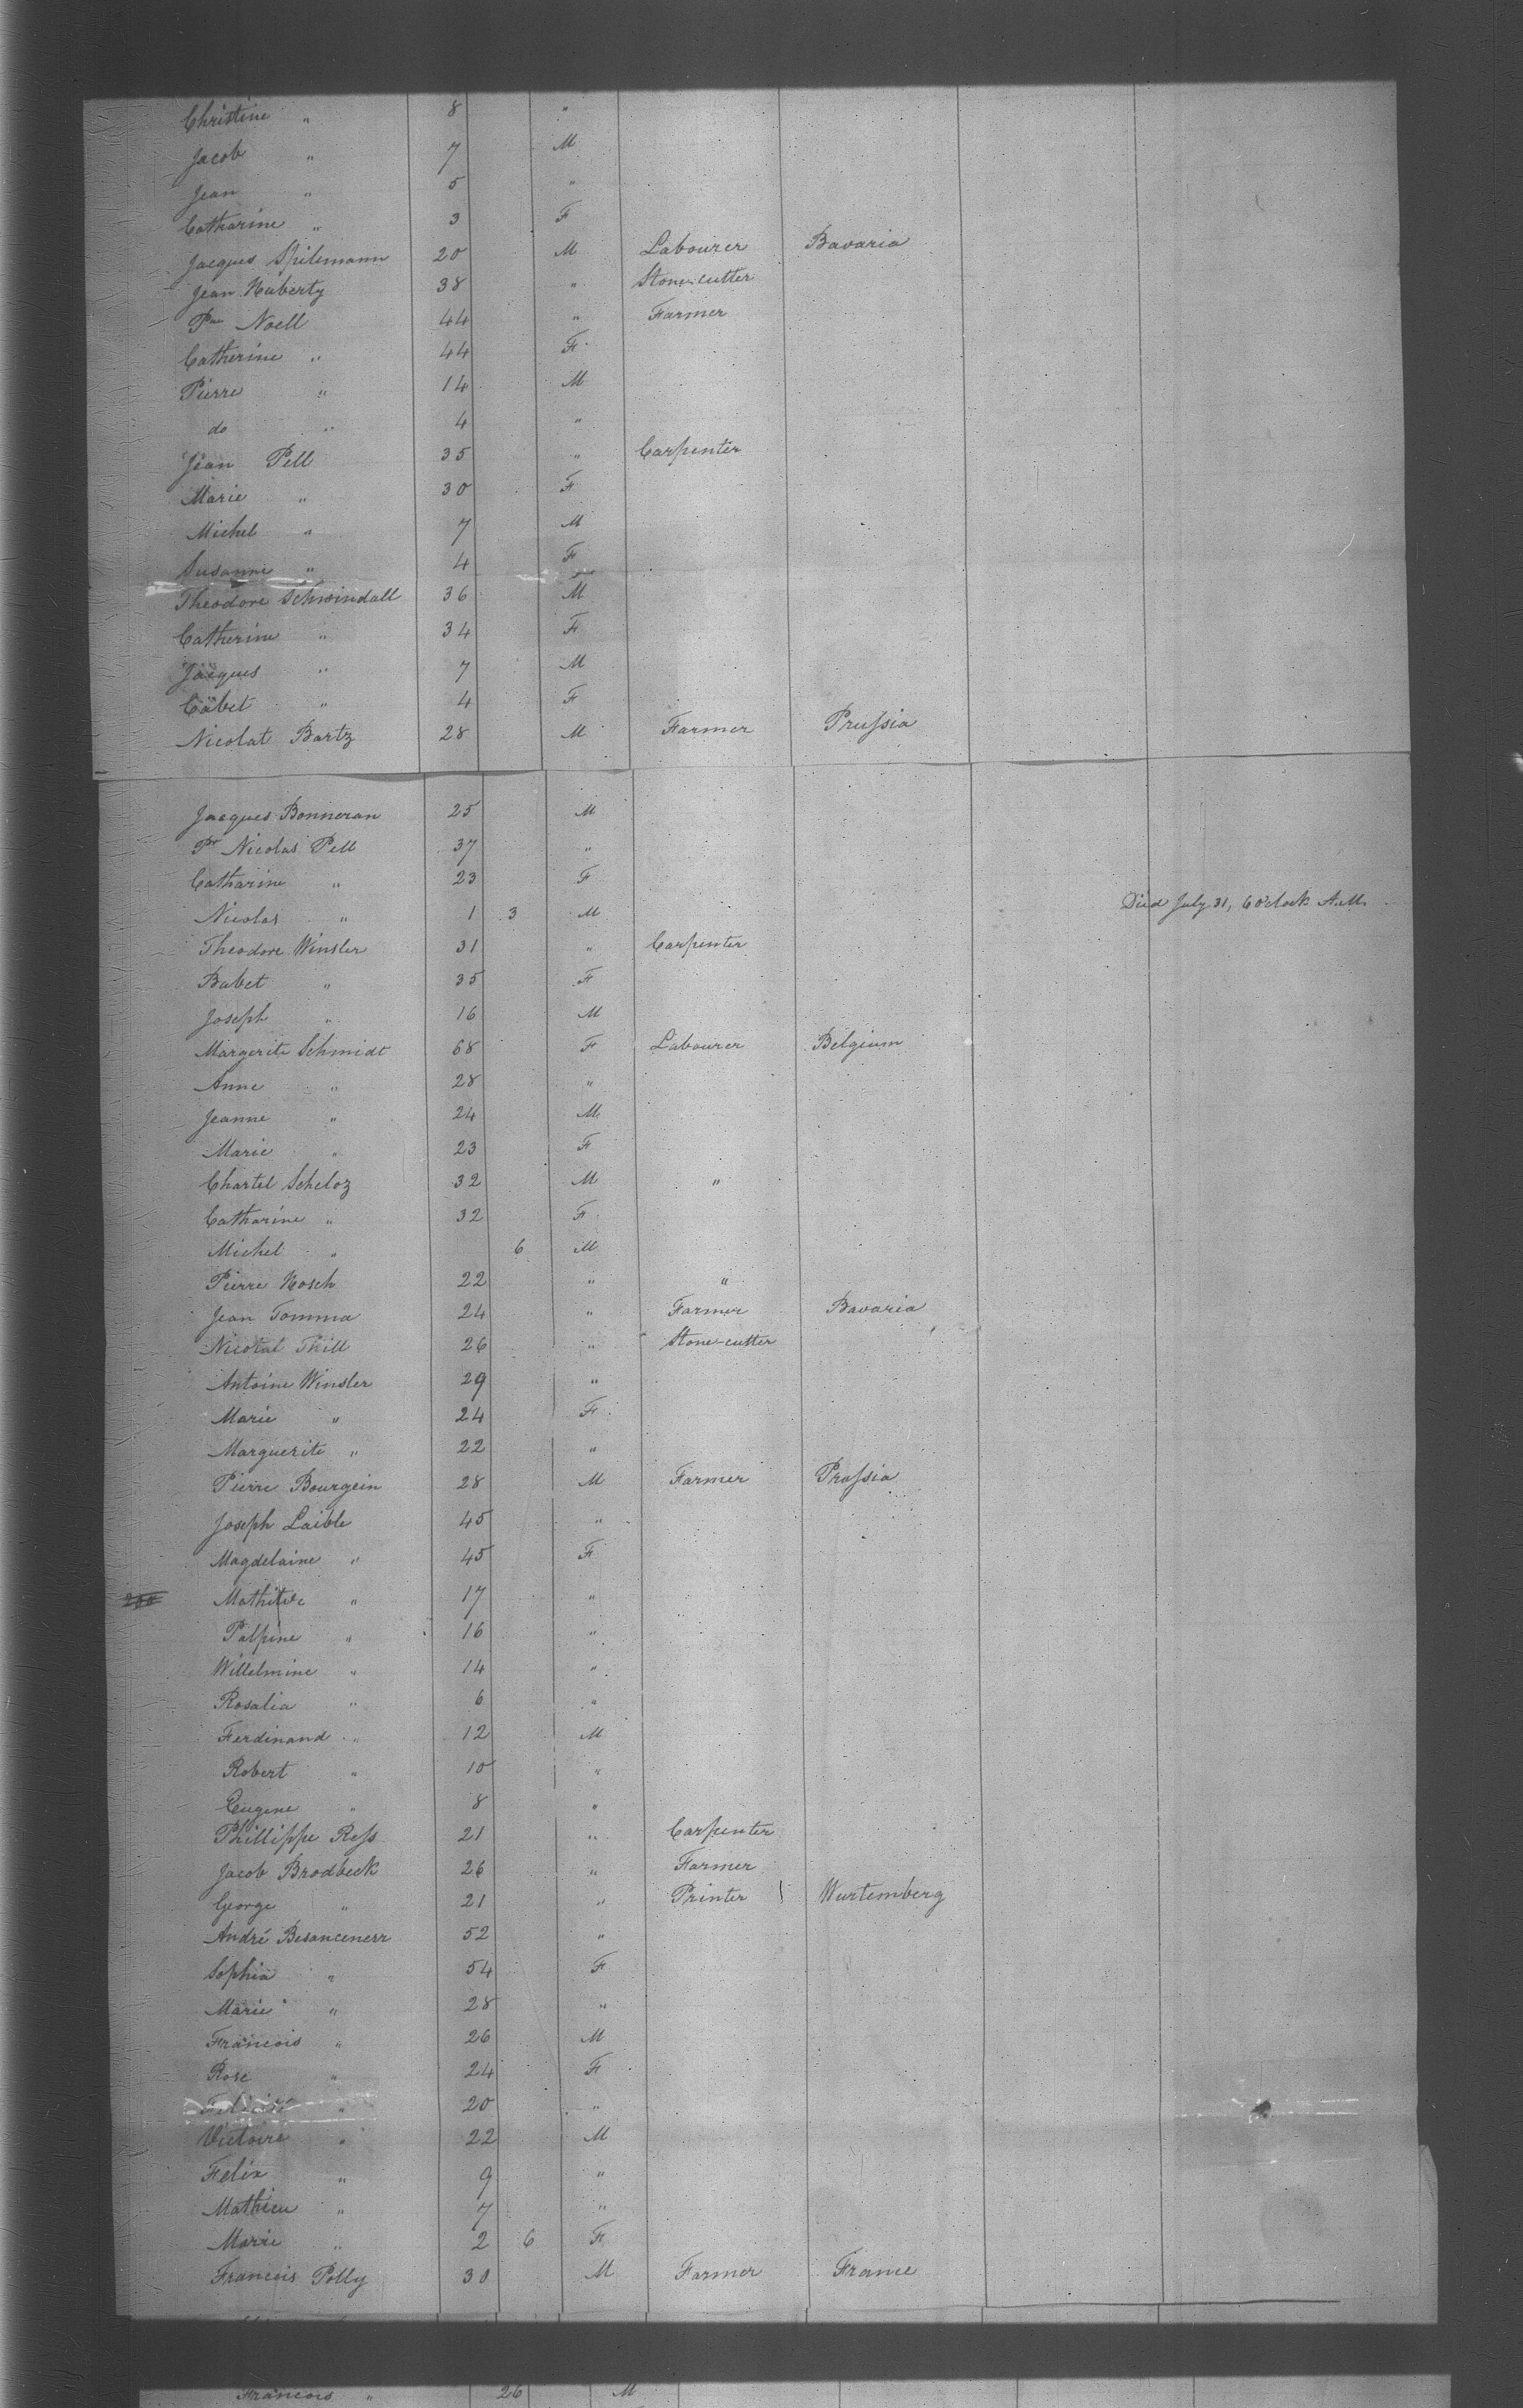 Christine " 8 "
Jacob " 7 M
Jean " 5 "
Catharine " 3 F
Jacques Spilemann 20 M Labourer Bavaria
Jean Huberty 38 " Stone-cutter
Noell 44 " Farmer
Catherine " 44 F
Pierre " 14 M
do " 4 "
Jean Pell 35 " Carpenter
Marie " 30 F
Michel " 7 M
Susanne " 4 F
Theodore Schwindall 36 M
Catherine " 34 F
Jacques " 7 M
Cabet " 4 F
Nicolat Bartz 28 M Farmer Prussia
Jacques Bonneran 25 M
Pr Nicolas Pell 37 "
Catharine " 23 F
Nicolas " 1 3 M Died July 31, 6 o'clock A.M.
Theodore Winsler 31 " Carpenter
Babet " 35 F
Joseph " 16 M
Margerite Schmidt 68 F Labourer Belgium
Anne " 28 "
Jeanne " 24 M
Marie " 23 F
Chartel Scheloz 32 M "
Catharine " 32 F
Michel " 6 M
Pierre Hosch 22 " "
Jean Tomma 24 " Farmer Bavaria
Nicolat Thill 26 " Stone-cutter
Antoine Winsler 29 "
Marie " 24 F
Marguerite " 22 "
Pierre Bourgein 28 M Farmer Prussia
Joseph Laible 45 "
Magdelaine " 45 F
200 " 17 "
Palpine " 16 "
Willelmine " 14 "
Rosalia " 6 "
Ferdinand " 12 M
Robert " 10 "
Eugene " 8 "
Phillippe Ress 21 " Carpenter
Jacob Brodbeck 26 " Farmer
George " 21 " Printer Wurtemberg
André Besancenerr 52 "
Sophia " 54 F
Marie " 28 "
Francois " 26 M
Rose " 24 F
" 20 "
Victoire " 22 M
Felix " 9 "
Mathieu " 7 "
Marie " 2 6 F
Francois Polly 30 M Farmer France
Francois " 26 M